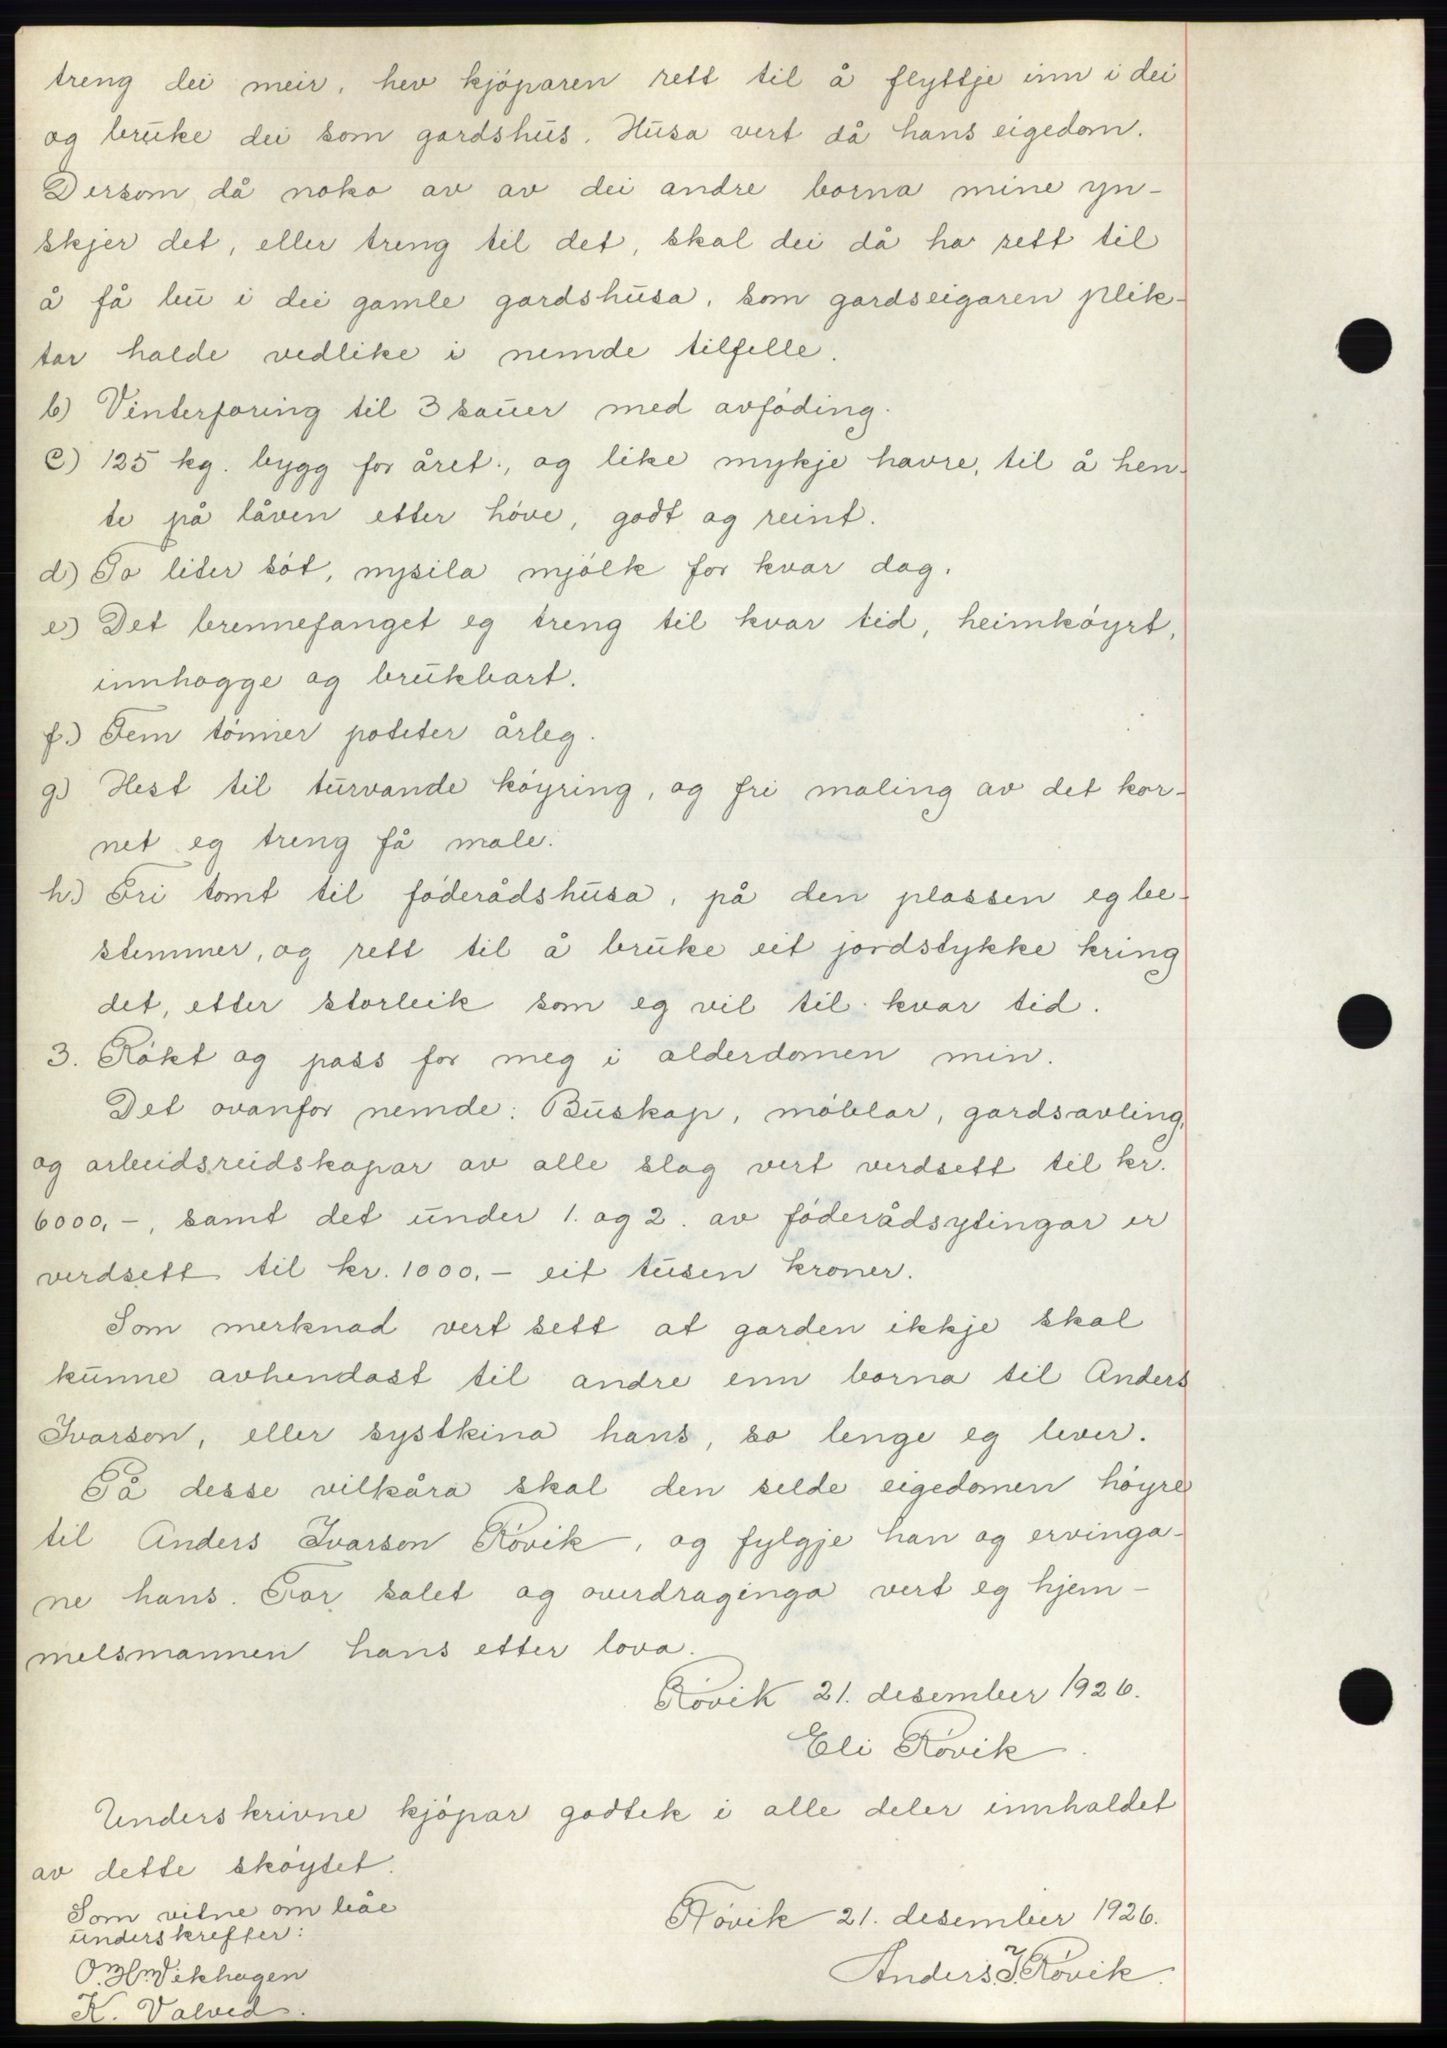 treng dei meir, hev kjóparen rett til å flyttje inn i dei
og bruke dei som gardshus. Husa vert då hans eigedom.
Dersom då noko av av dei andre borna mine yn-
skjer det, eller treng til det, skal dei då ha rett til
å få bu i dei gamle gardshusa, som gardseigaren plik-
tar halde vedlike i nemde tilfelle.
b) Vinterforing til 3 sauer med avfóding.
c) 125 kg. bygg for året, og like mykje havre, til å hen-
te på låven etter hóve, godt og reint.
d) To liter sót, nysila mjólk for kvar dag.
e) Det brennefanget eg treng til kvar tid, heimkóyrt,
innhogge og brukbart.
f.) Fem tónner poteter årleg.
g) Hest til turvande kóyring, og fri maling av det kor-
net eg treng få male.
h.) Fri tomt til fóderådshusa, på den plassen eg be-
stemmer, og rett til å bruke eit jordstykke kring
det, etter storleik som eg vil til kvar tid.
3. Rókt og pass for meg i alderdomen min.
Det ovanfor nemde: Buskap, móblar, gardsavling,
og arbeidsreidskapar av alle slag vert verdsett til kr.
6000,-, samt det under 1. og 2. av fóderådsytingar er
verdsett til kr. 1000,- eit tusen kroner.
Som merknad vert sett at garden ikkje skal
kunne avhendast til andre enn borna til Anders
Ivarson, eller systkina hans, so lenge eg lever.
På desse vilkåra skal den selde eigedomen hóyre
til Anders Ivarson Róvik, og fylgje han og ervinga-
ne hans. For salet og overdraginga vert eg hjem-
melsmannen hans etter lova.
Róvik 21. desember 1926.
Eli Róvik.
Underskrivne kjópar godtek i alle deler innhaldet
av dette skóytet.
Som vitne om båe
underskrefter:
Róvik 21. desember 1926.
O. M. Vikhagen
Anders. I. Róvik.
K. Valved.